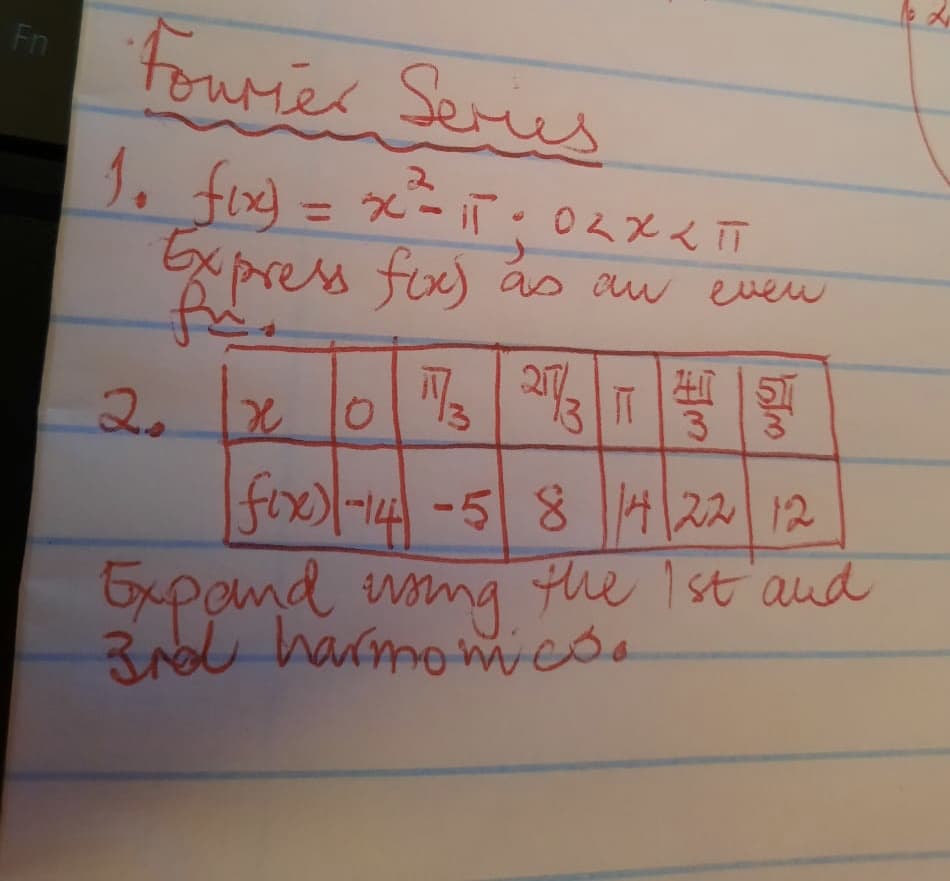 Fn
Fourier Series
1. f(x) = x² - π ; 0 < x < π
Express f(x) as an even
fn.
2. x 0 π/3 2π/3 π 4π/3 5π/3
f(x) -14 -5 8 14 22 12
Expand using the 1st and
3rd harmonics.